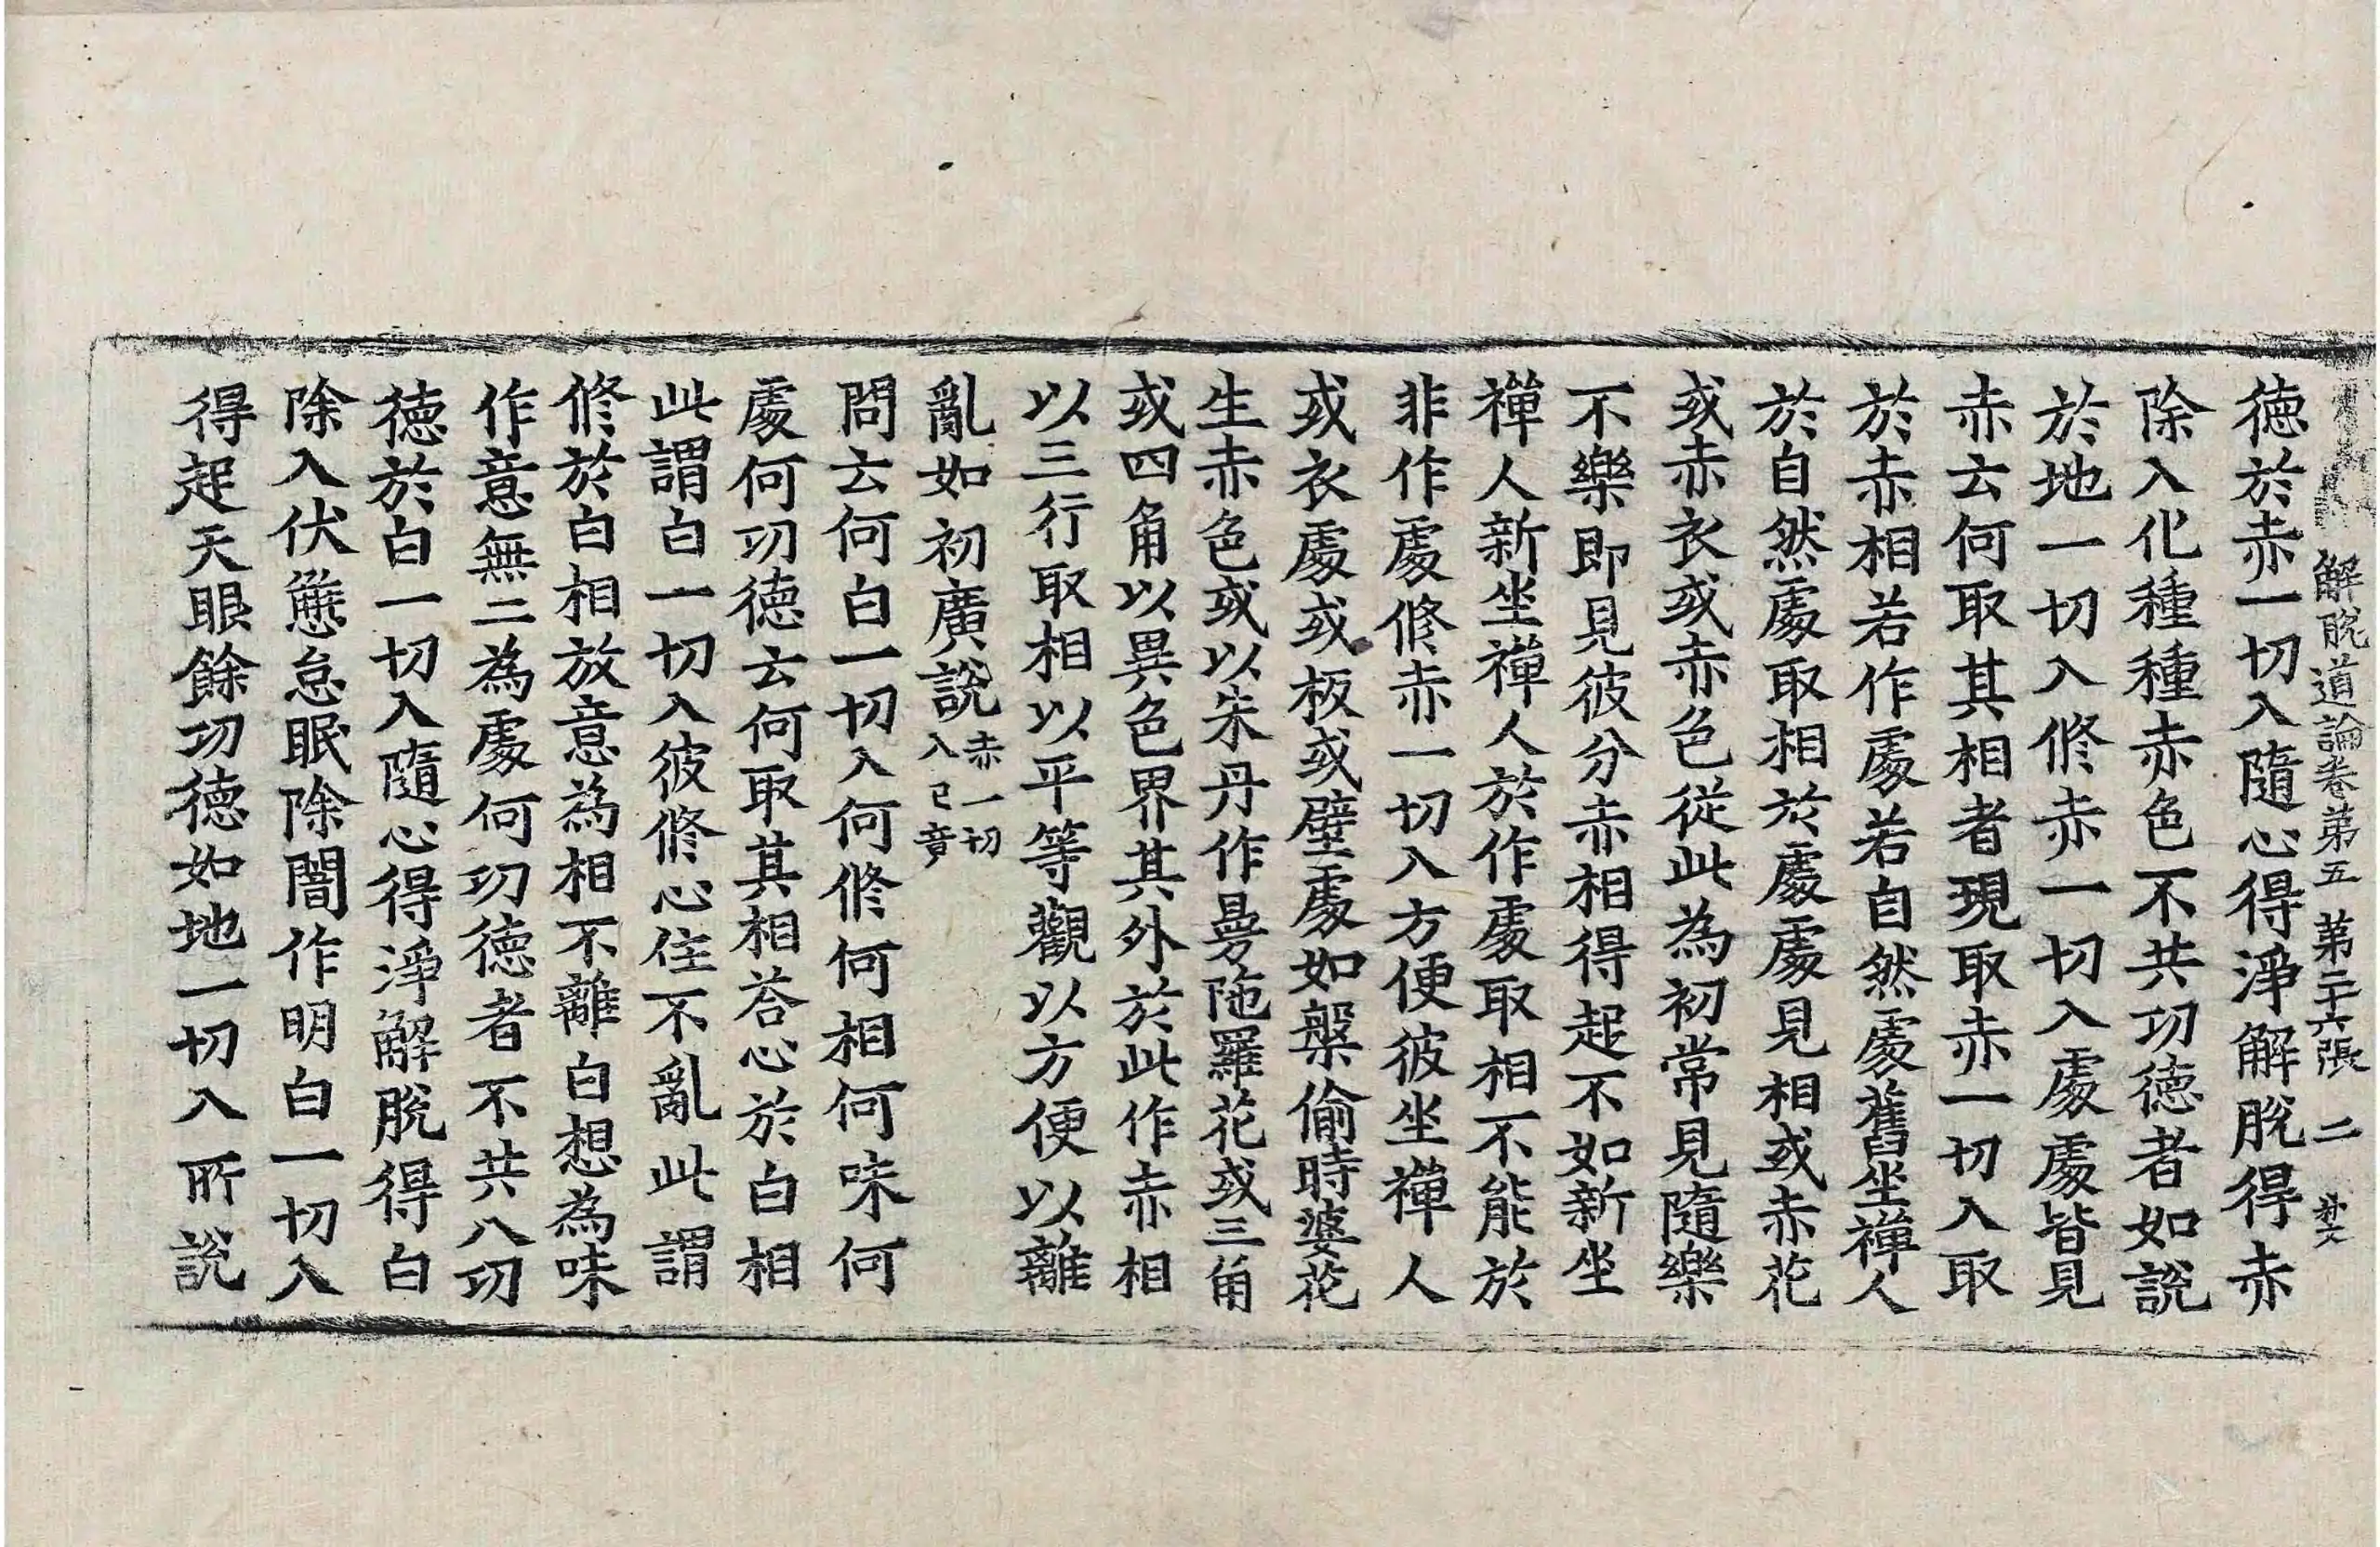 解脫道論卷第五 第二十六張 二
德於赤一切入隨心得淨解脫得赤
除入化種種赤色不共功德者如說
於地一切入修赤一切入處處皆見
赤云何取其相者現取赤一切入取
於赤相若作處若自然處舊坐禪人
於自然處取相於處處見相或赤花
或赤衣或赤色從此為初常見隨樂
不樂即見彼分赤相得起不如新坐
禪人新坐禪人於作處取相不能於
非作處修赤一切入方便彼坐禪人
或衣處或板或壁處如槃偷時婆花
生赤色或以朱丹作曼陁羅花或三角
或四角以異色界其外於此作赤相
以三行取相以平等觀以方便以離
亂如初廣說赤一切入已竟
問云何白一切入何修何相何味何
處何功德云何取其相荅心於白相
此謂白一切入彼修心住不亂此謂
修於白相放意為相不離白想為味
作意無二為處何功德者不共八功
德於白一切入隨心得淨解脫得白
除入伏懈怠眠除闇作明白一切入
得起天眼餘功德如地一切入所說